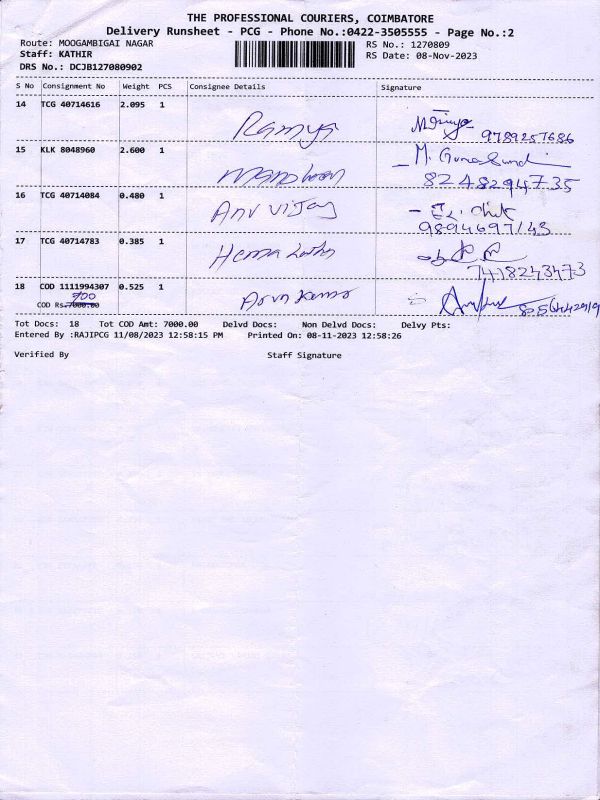 THE PROFESSIONAL COURIERS, COIMBATORE
Delivery Runsheet - PCG - Phone No.:0422-3505555 - Page No.:2
Route: MOOGAMBIGAI NAGAR RS No.: 1270809
Staff: KATHIR RS Date: 08-Nov-2023
DRS No.: DCJB127080902
S No Consignment No Weight PCS Consignee Details Signature
14 TCG 40714616 2.095 1
Ramya 9789257686
15 KLK 8048960 2.600 1 M.
8248294735
16 TCG 40714084 0.480 1 Anu vijay
9894697143
17 TCG 40714783 0.385 1 Hema
7418243473
18 COD 1111994307 0.525 1
700 Arun Kumar
COD Rs.7000.00
Tot Docs: 18 Tot COD Amt: 7000.00 Delvd Docs: Non Delvd Docs: Delvy Pts:
Entered By :RAJIPCG 11/08/2023 12:58:15 PM Printed On: 08-11-2023 12:58:26
Verified By Staff Signature